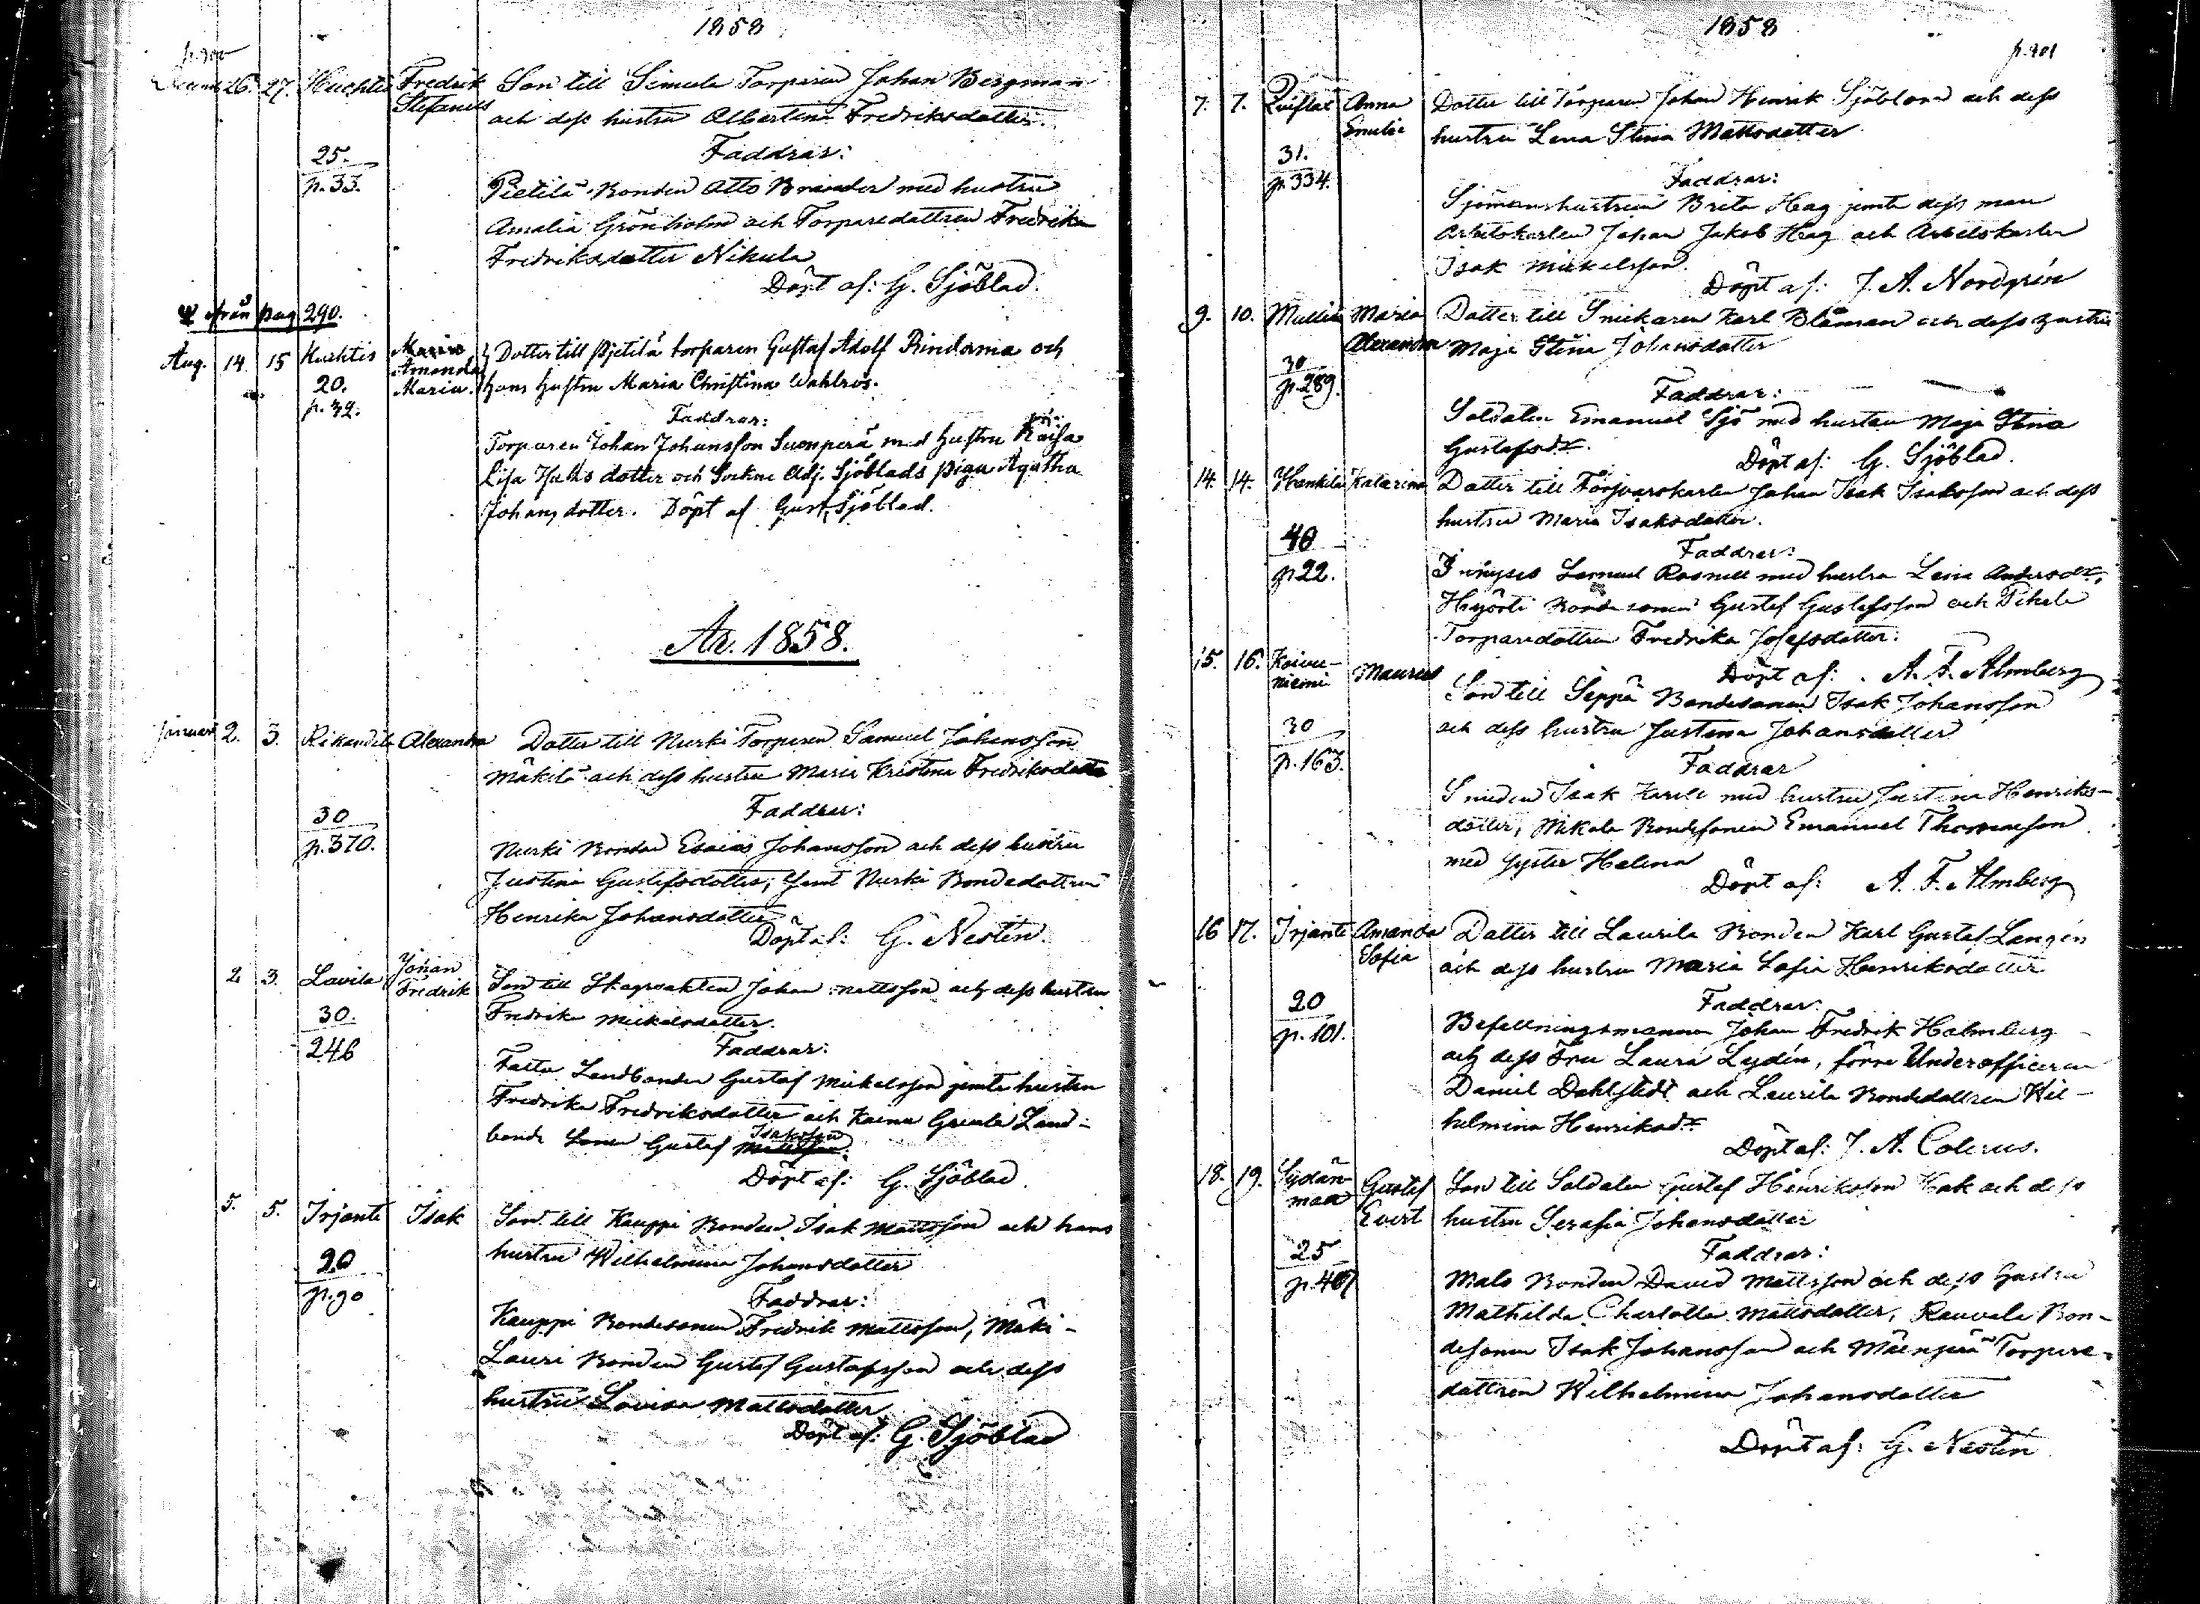 1858
p. 300
Decemb 26. 27. Kuchtis Fredrik Son till Simula Torparen Johan Bergman
Stefanus och dess hustru Albertina Fredriksdotter.
Faddrar:
25.
p. 33.
Pietilä Bonden Otto Brander med hustru
Amalia Grönholm och Torparedottren Fredrika
Fredriksdotter Nikula
Döpt af: G. Sjöblad.
från pag 290.
Aug. 14 15 Kuchtis Maria Dotter till Pietilä torparen Gustaf Adolf Rindania och
Amanda
20. Maria. hans hustru Maria Christina Wahlros.
p. 32.
Faddrar:
Torparen Johan Johansson Suonperä med hustru Kaisa
Lisa Hansdotter och Sockne Adj. Sjöblads piga Agatha
Johansdotter. Döpt af Gust. Sjöblad.
År. 1858.
Januari 2. 3. Rikandila Alexandra Dotter till Nurki Torparen Samuel Johansson
Mäkilä och dess hustru Maria Kristina Fredriksdotter
Faddrar:
30
p. 370.
Nurki Bonden Esaias Johansson och dess hustru
Justina Gustafsdotter; Samt Nurki Bondedottren
Henrika Johansdotter
Döpt af: G. Nestin.
2 3. Lavila Johan
Fredrik Son till Skogvakten Johan Mattsson och dess hustru
30. Fredrika Mickelsdotter.
246
Faddrar:
Tatta Landbonden Gustaf Mickelsson jemte hustru
Fredrika Fredriksdotter och Kaenu Greula Land-
bonde Sonen Gustaf Isaksson
Döpt af: G. Sjöblad.
5. 5. Irjante Isak Son till Kauppi Bonden Isak Mattsson och hans
hustru Wilhelmina Johansdotter
20
p. 90
Faddrar:
Kauppi Bondesonen Fredrik Mattsson, Mäki-
Lauri Bonden Gustaf Gustafsson och dess
hustru Lovisa Mattsdotter
Döpt af: G. Sjöblad
1858
p. 301
7. 7. Quiflax Anna Dotter till Torparen Johan Henrik Sjöblom och dess
Emilie hustru Lena Stina Mattsdotter
31.
p. 334.
Faddrar:
Sjömanshustrun Brita Hag jemte dess man
Arbetskarlen Johan Jakob Hag och Arbetskarlen
Isak Mickelsson.
Döpt af: J. A. Nordgrén
9. 10. Mullia Maria Dotter till Snickaren Karl Blåman och dess hustru
Alexandra Maja Stina Johansdotter
30
p. 289.
Faddrar:
Soldaten Emanuel Sjö med hustru Maja Stina
Gustafsdr.
Döpt af: G. Sjöblad.
14. 14. Hankila Katarina Dotter till Försvarskarlen Johan Isak Isaksson och dess
hustru Maria Isaksdotter.
40
p 22.
Faddrar:
Inhyses Samuel Rosnell med hustru Lena Andersdr,
Hyörti Bonde sonen Gustaf Gustafsson och Pikala
Torparedottren Fredrika Josefsdotter.
Döpt af: A. F. Almberg
15. 16. Koivu-
niemi Mauritz Son till Seppä Bondesonen Isak Johansson
och dess hustru Justina Johansdotter
30
p. 163.
Faddrar
Smeden Isak Karell med hustru Justina Henriks-
dotter, Mikola Bondesonen Emanuel Thomasson
med syster Helena
Döpt af: A. F. Almberg
16 17. Irjante Amanda Dotter till Laurila Bonden Karl Gustaf Langén
Sofia och dess hustru Maria Sofia Henriksdotter
20
p. 101.
Faddrar.
Befallningsmannen Johan Fredrik Holmberg
och dess Fru Laura Lydén, förre Underofficeren
Daniel Dahlstedt och Laurila Bondedottren Wil-
helmina Henriksdr.
Döpt af: J. A. Colerus.
18. 19. Sydän-
maa Gustaf Son till Soldaten Gustaf Henriksson Hak och dess
Evert hustru Serafia Johansdotter
25
p. 407
Faddrar:
Malo Bonden David Mattsson och dess hustru
Mathilda Charlotta Mattsdotter, Rauvola Bon-
desonen Isak Johansson och Mäenpää Torpare-
dottren Wilhelmina Johansdotter
Döpt af: G. Nestin